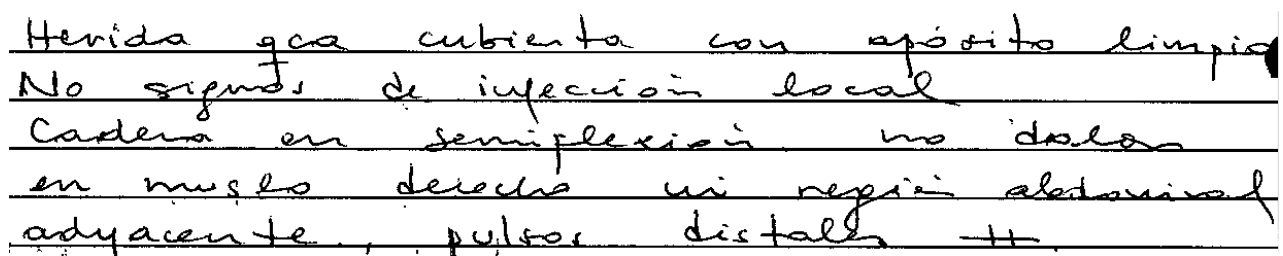 Herida qca cubierta con apósito limpio
No signos de infección local
Cadera en semiflexión no dolor
en muslo derecho ni región abdominal
adyacente, pulsos distales ++